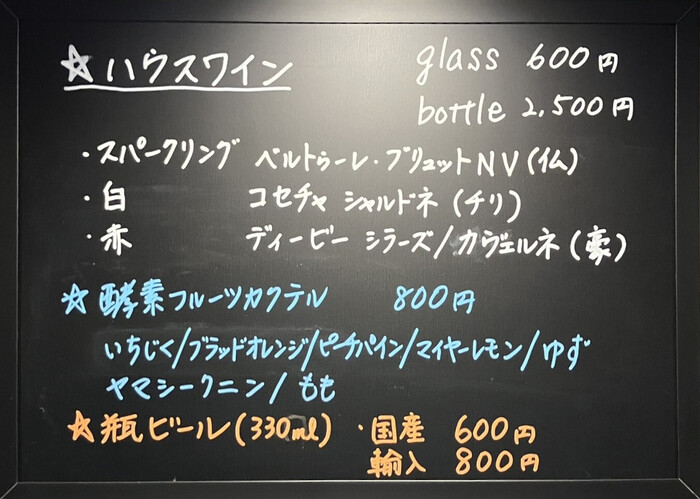 ☆ハウスワイン glass 600円
bottle 2,500円
・スパークリング ベルトゥーレ・ブリュットNV(仏)
・白 コセチャ シャルドネ(チリ)
・赤 ディービー シラーズ/カヴェルネ(豪)
☆酵素フルーツカクテル 800円
いちじく/ブラッドオレンジ/ピーチパイン/マイヤーレモン/ゆず
ヤマシークニン/もも
☆瓶ビール(330ml)・国産 600円
輸入 800円